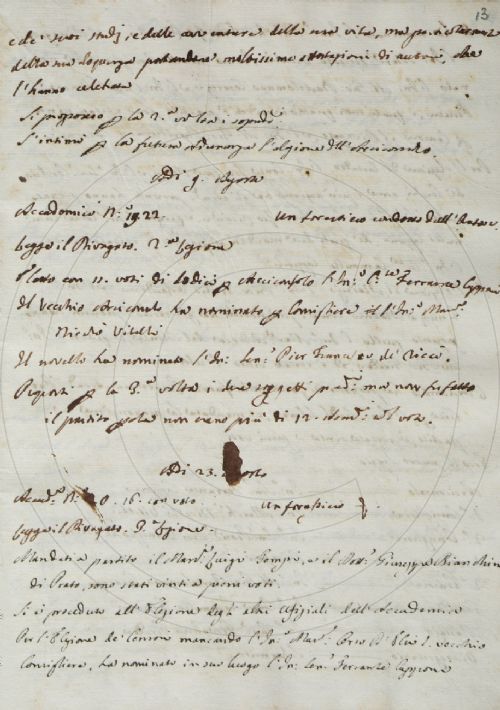 13
e de' suoi studj, e delle avventure della sua vita, ma
della sua eloquenza portandone moltissime attestazioni di autori, che
l'hanno celebrata
Si proposero p la 2.ª volta i sopradd.
S'intimò p la futura Adunanza l'elezione dell'Arciconsolo.
Adì 9. Agosto
Accademici N.º 19. 22. Un forestiero condotto dall'
Legge il Rivogato. 2.ª Lezione
Eletto con 11. voti di Lodici p Arciconsolo l'In.º Ferrante Capponi
Il Vecchio Arciconsolo ha nominato p Consigliere il l'In.º Mar.
Niccolò Vitelli
Il novello ha nominato l'In. Sen. Pier Francesco de' Ricci.
p la 3.ª volta i due soggetti ma non fu fatto
il partito non erano più di 12. Accad.
Adì 23. Agosto
Accad. N.º 20. 16. con voto. Un forestiero
Legge il Rivogato. 3.ª Lezione.
Mandati a partito il Mar. Luigi e il Giuseppe Bianchini
di Prato, sono stati vinti a pieni voti.
Si è proceduto all'Elezione degli altri Ufiziali dell'Accademia
Per l'Elezione de' Censori mancando l'In. Mar. vecchio
Consigliere, ha nominato in suo luogo l'In. Sen. Ferrante Capponi